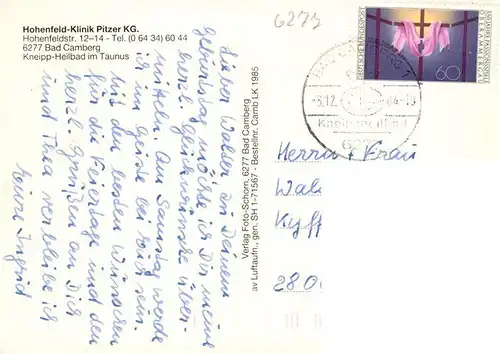 Hohenfeld-Klinik Pitzer KG.
Hohenfeldstr. 12–14 - Tel. (0 64 34) 60 44
6277 Bad Camberg
Kneipp-Heilbad im Taunus
Lieber Walter, zu Deinem
Geburtstag möchte ich Dir meine
herzl. Glückwünsche über-
mitteln. Am Samstag werde
ich im Geiste bei Dir sein.
Mit den besten Wünschen
für die Feiertage und den
herzl. Grüßen an Dich
und Thea verbleibe ich
Eure Ingrid
Verlag Foto-Schorn, 6277 Bad Camberg
av Luftaufn., gen. SH 1-71567 - Bestellnr. Camb LK 1985
DEUTSCHE BUNDESPOST
60
Herrn + Frau
Wal
Kyff